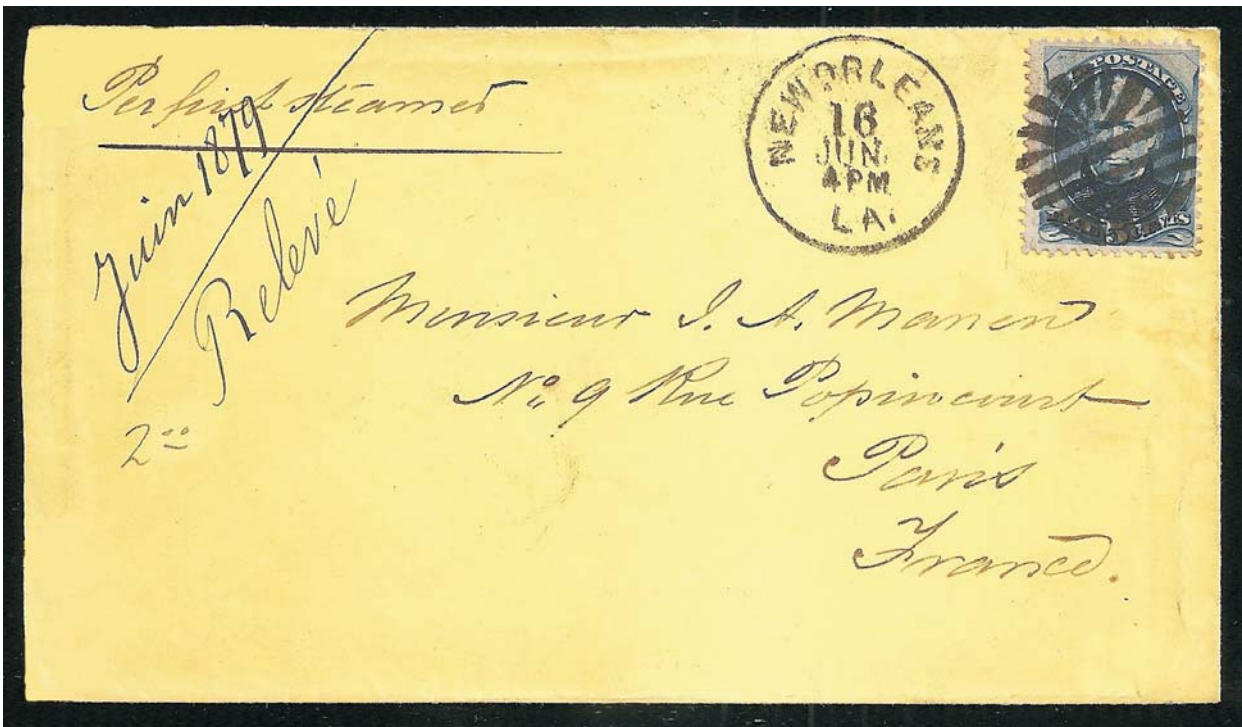 Per first steamer
Juin 1879
Relevé
2 00
NEW ORLEANS
16
JUN.
4 PM
LA.
POSTAGE
5
Monsieur J. A. Manen
No. 9 Rue Popincourt
Paris
France.